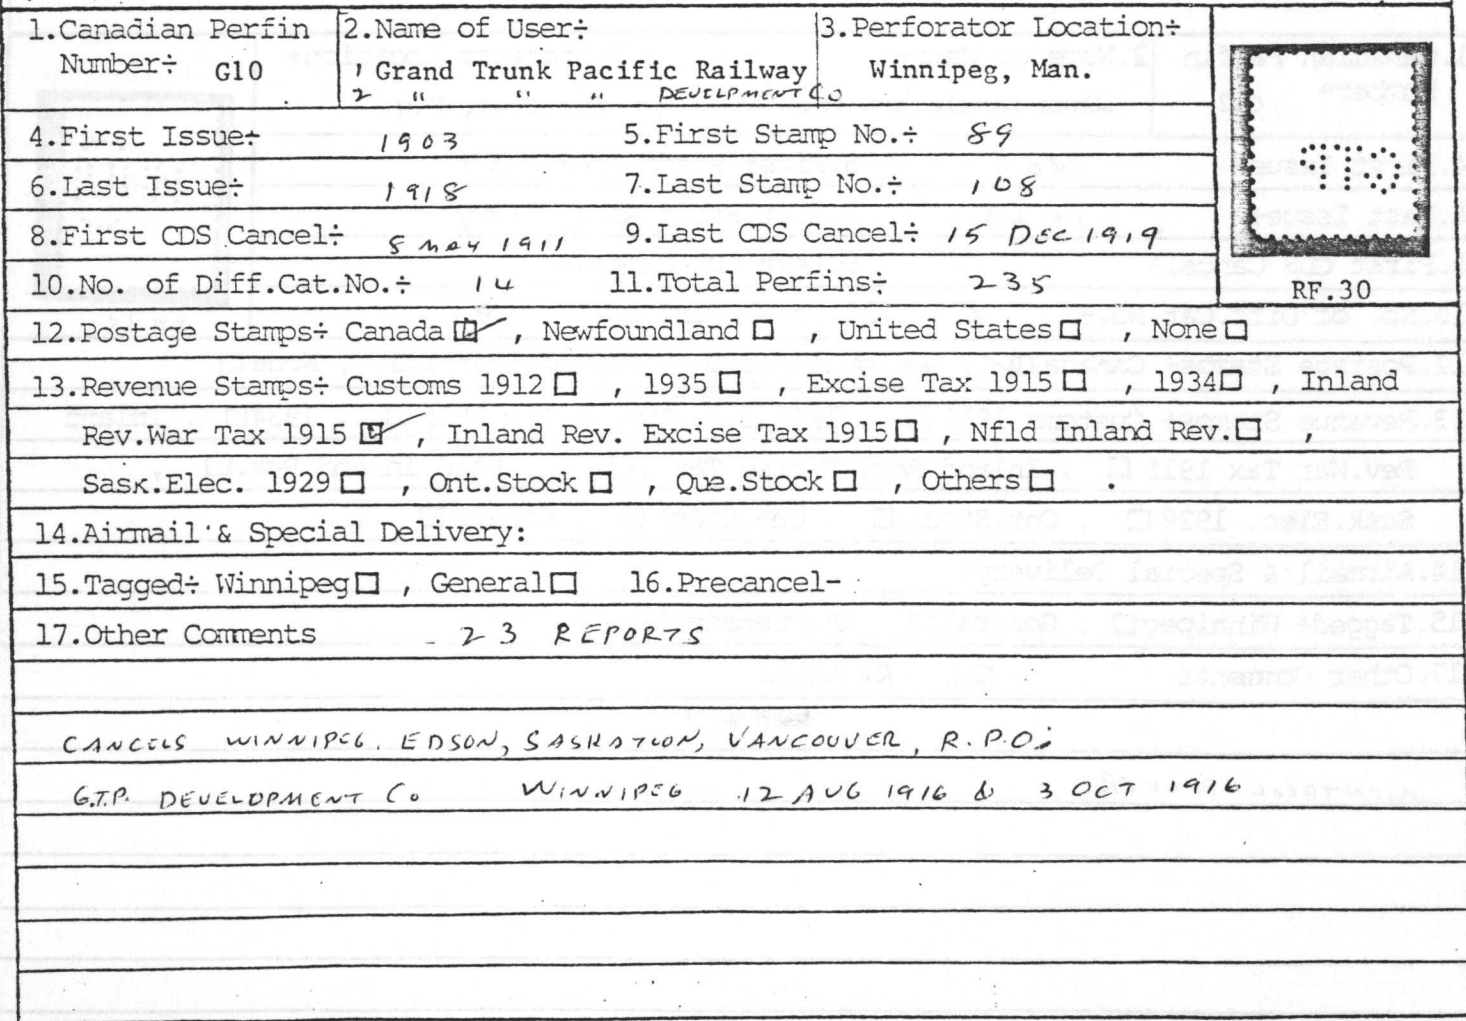 1.Canadian Perfin Number÷ G10
2.Name of User÷
1 Grand Trunk Pacific Railway
2 " " " DEVELPMENT CO
3.Perforator Location÷
Winnipeg, Man.
4.First Issue÷ 1903 5.First Stamp No.÷ 89
6.Last Issue÷ 1918 7.Last Stamp No.÷ 108
8.First CDS Cancel÷ 8 MAY 1911 9.Last CDS Cancel÷ 15 DEC 1919
10.No. of Diff.Cat.No.÷ 14 11.Total Perfins÷ 235
RF.30
12.Postage Stamps÷ Canada ☑ , Newfoundland ☐ , United States ☐ , None ☐
13.Revenue Stamps÷ Customs 1912 ☐ , 1935 ☐ , Excise Tax 1915 ☐ , 1934 ☐ , Inland
Rev.War Tax 1915 ☑ , Inland Rev. Excise Tax 1915 ☐ , Nfld Inland Rev. ☐ ,
Sask.Elec. 1929 ☐ , Ont.Stock ☐ , Que.Stock ☐ , Others ☐ .
14.Airmail & Special Delivery:
15.Tagged÷ Winnipeg ☐ , General ☐ 16.Precancel-
17.Other Comments - 23 REPORTS
CANCELS WINNIPEG. EDSON, SASKATOON, VANCOUVER, R.P.O;
G.T.P. DEVELOPMENT Co WINNIPEG 12 AUG 1916 & 3 OCT 1916